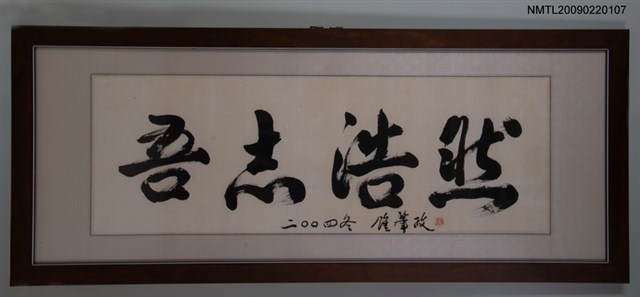 NMTL20090220107
吾志浩然
二〇〇四冬 鍾肇政